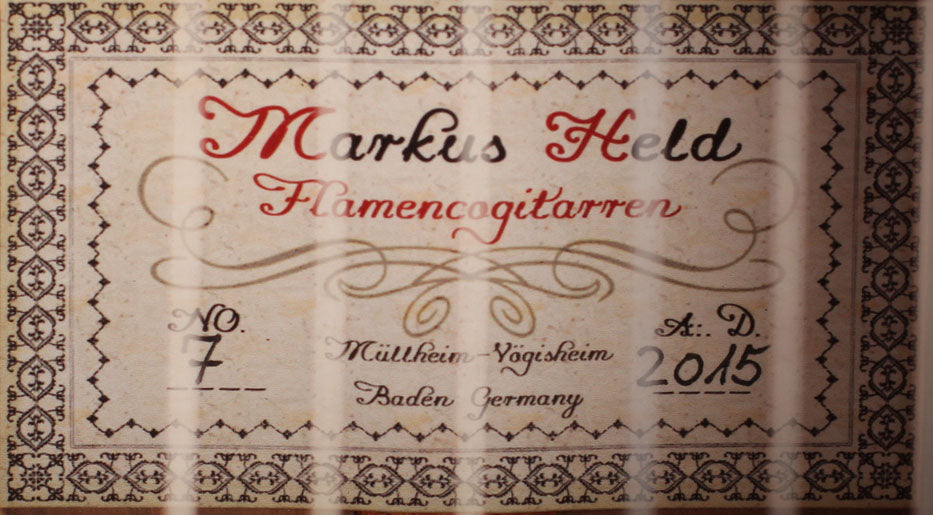 Markus Held
Flamencogitarren
NO.
7
Müllheim-Vögisheim
Baden Germany
A:. D.
2015